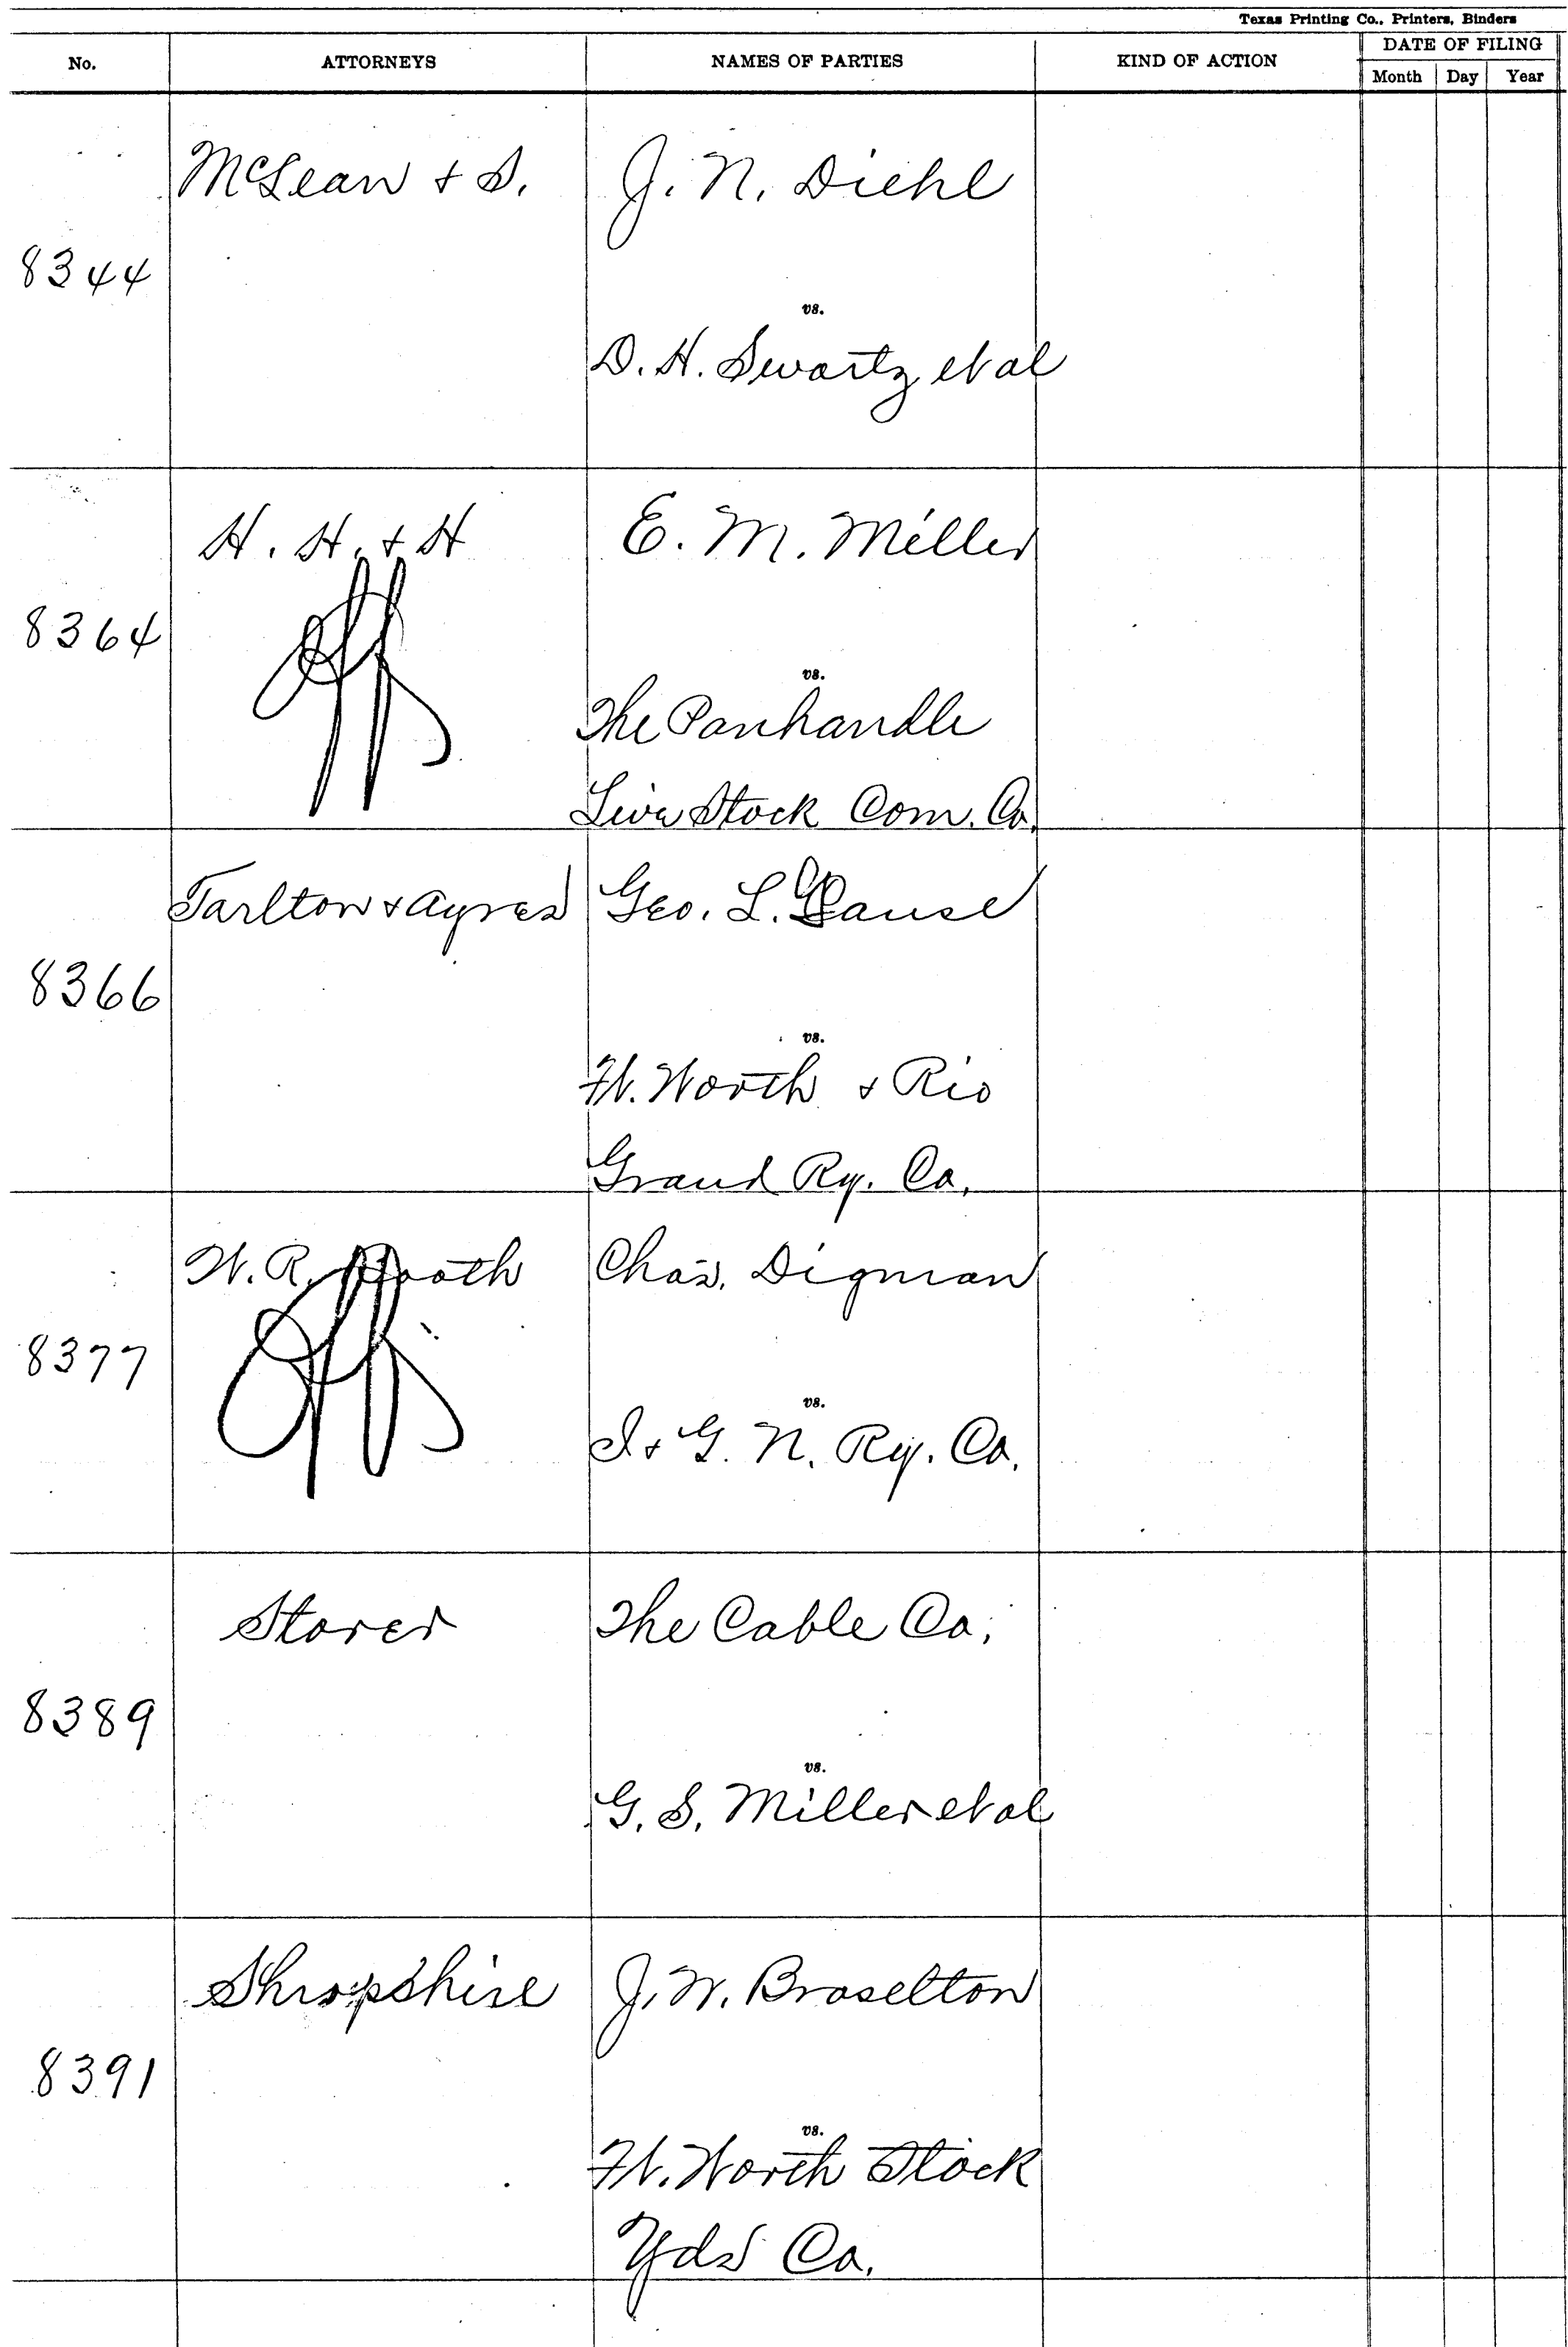 Texas Printing Co., Printers, Binders
No. ATTORNEYS NAMES OF PARTIES KIND OF ACTION DATE OF FILING
Month Day Year
McLean + S. J. N. Diehl
8344
vs.
D. H. Swartz et al
H. H. + H E. M. Miller
8364
vs.
The Panhandle
Live Stock Com. Co.
Tarlton + Ayres Geo. L. Gause
8366
vs.
Ft. Worth + Rio
Grand Ry. Co.
W. R. Booth Chas. Digman
8377
vs.
I + G. N. Ry. Co.
Storer The Cable Co.
8389
vs.
G. S. Miller et al
Shropshire J. W. Braselton
8391
vs.
Ft. Worth Stock
Yds Co.